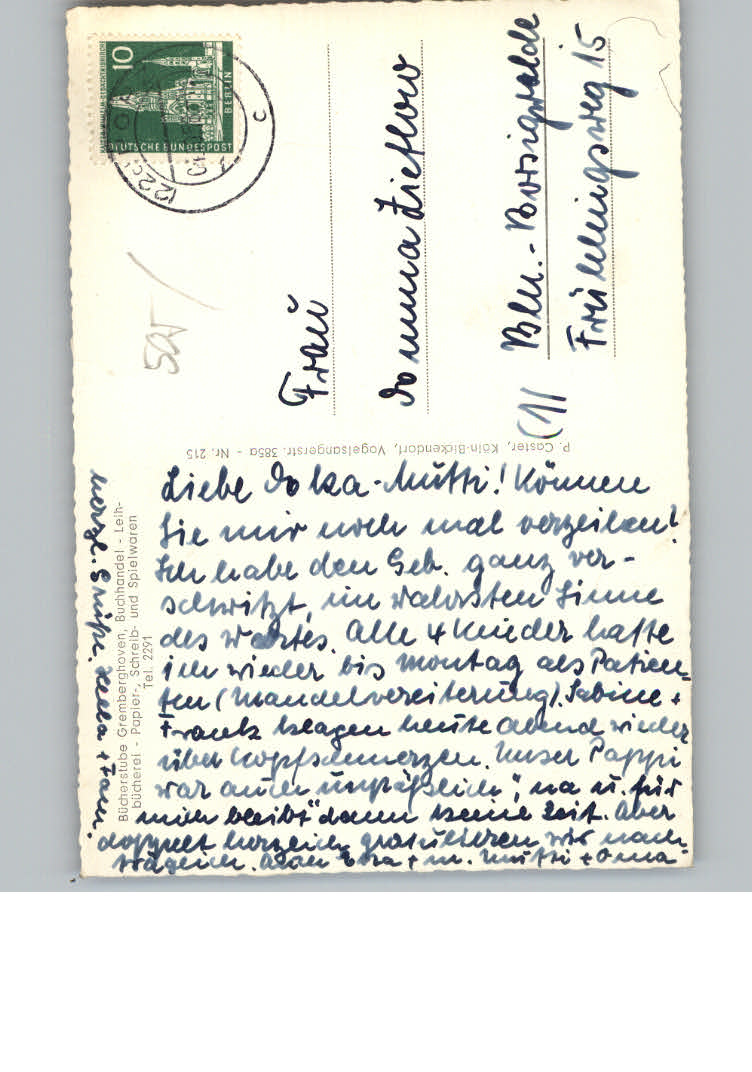 10
BERLIN
DEUTSCHE BUNDESPOST
(22c)
c
Frau
Emma Zietlow
Bln.-Borsigwalde
Frühlingsweg 15
(1)
P. Coster, Köln-Bickendorf, Vogelsangerstr. 385a - Nr. 215
Bücherstube Gremberghoven, Buchhandel - Leih-
bücherei - Papier-, Schreib- und Spielwaren
Tel. 2291
Liebe Mutti! Können
Sie mir noch mal verzeihen?
Ich habe den Geb. ganz ver-
schwitzt, im wahrsten Sinne
des Wortes. Alle 4 Kinder hatte
ich wieder bis Montag als Patien-
ten (Mandelvereiterung). Sabine +
Frank klagen heute Abend wieder
über Kopfschmerzen. Unser Pappi
war auch unpäßlich", na u. für
mich bleibt" dann keine Zeit. Aber
doppelt herzlich gratulieren wir nach-
träglich. Auch + m. Mutti + Oma
herzl. Grüße. + Fam.